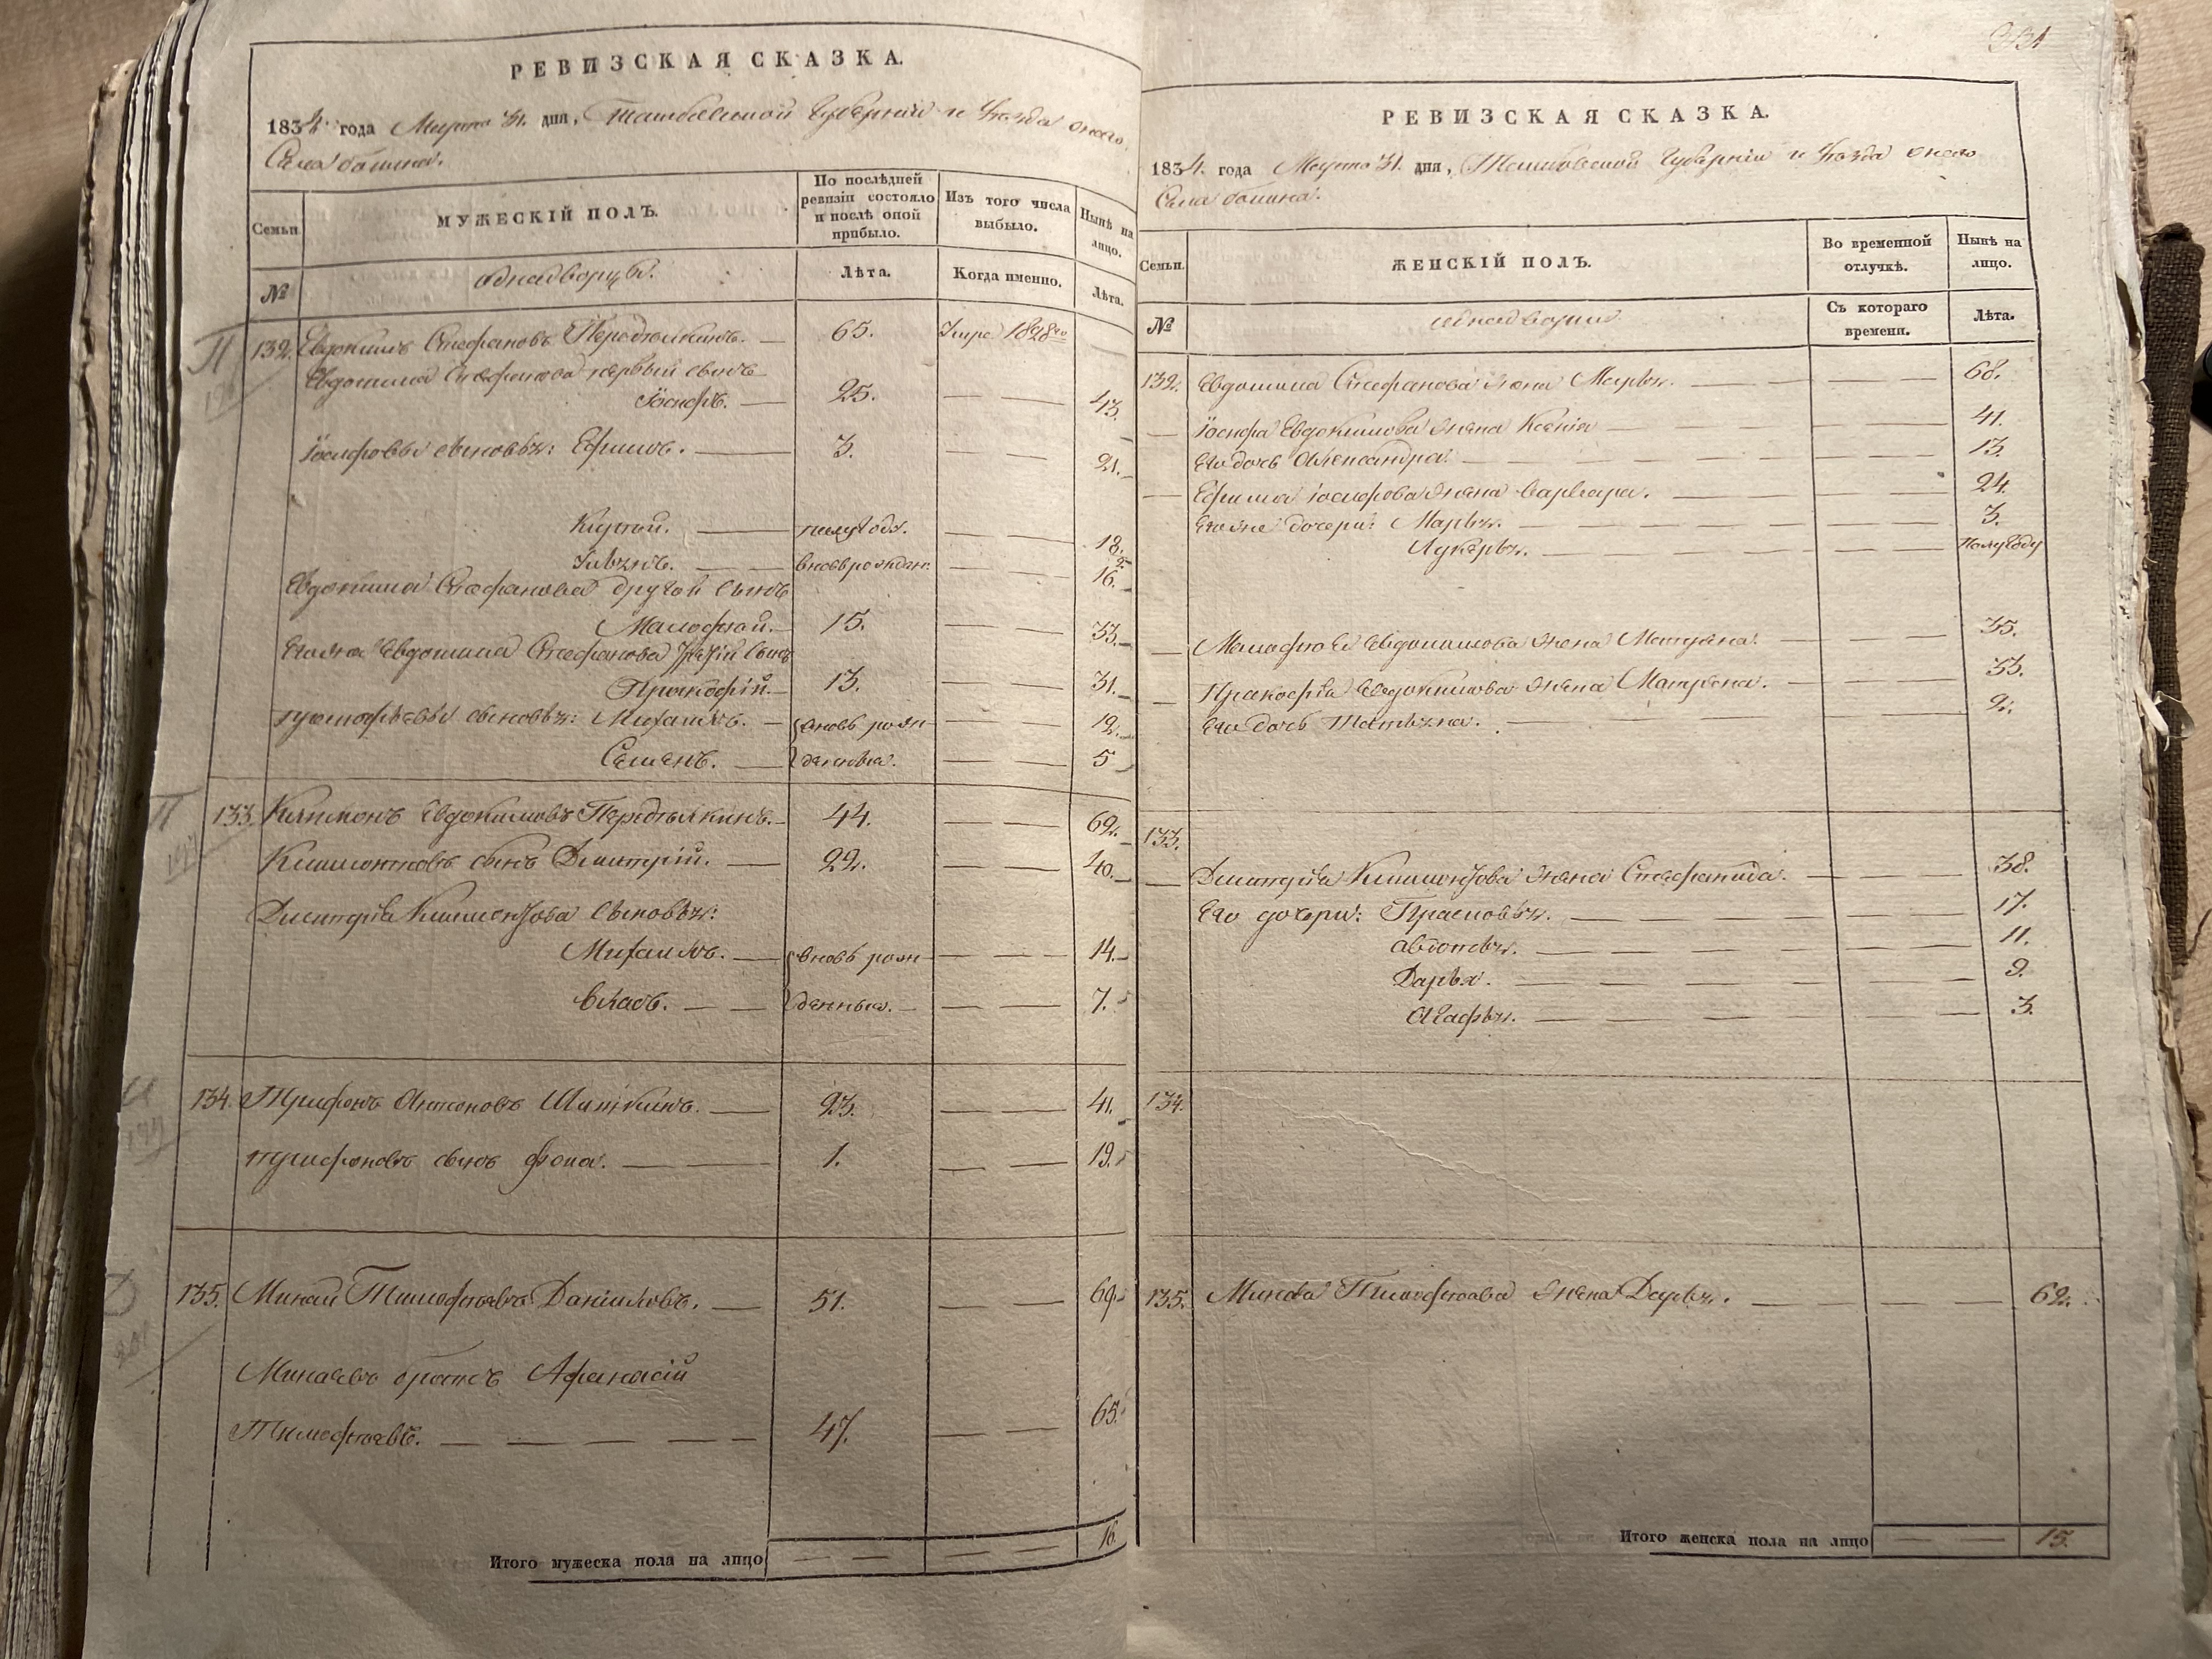 РЕВИЗСКАЯ СКАЗКА.
1834 года Марта 31. дня, Тамбовской Губернии и Уезда онаго
Села
Семьи.
МУЖЕСКІЙ ПОЛЪ.
По послѣдней ревизіи состояло и послѣ оной прибыло.
Изъ того числа выбыло.
Нынѣ на лицо.
№
однодворцы.
Лѣта.
Когда именно.
Лѣта.
П
132. Евдокимъ Стефановъ Передѣлкинъ. — 65. Умре 1828го
Евдокима Стефанова первый сынъ
Іосифъ. — 25. — — 43.
Іосифовы сыновья: Ефимъ. — 3. — — 21.
полугода. — — 18.
вновьрожден. — — 16.
Евдокима Стефанова другой сынъ
Малофѣй. — 15. — — 33.
Евдокима Стефанова третій сынъ
Прокофій. — 13. — — 31.
сыновья: Михаилъ. — вновь рож — — 12.
Семенъ. — денныя. — — 5
П
133. Климонъ Евдокимовъ Передѣлкинъ. — 44. — — 62.
Климонтовъ сынъ Дмитрій. — 22. — — 40.
Дмитрія Климонтова сыновья:
Михаилъ. — вновь рож — — 14.
Власъ. — — денныя. — — — 7.
134. Трифонъ Антоновъ Шаткинъ. — 23. — — 41.
трифоновъ сынъ фома. — — 1. — — 19.
135. Минай Тимофѣевъ Даниловъ. — 51. — — 69.
Минаевъ братъ Афанасій
Тимофѣевъ. — — — — — 47. — — 65.
Итого мужеска пола на лицо — — — — 16.
331
РЕВИЗСКАЯ СКАЗКА.
1834. года Марта 31. дня, Тамбовской Губерніи и Уезда онаго
Села
Семьи.
ЖЕНСКІЙ ПОЛЪ.
Во временной отлучкѣ.
Нынѣ на лицо.
№
Съ котораго времени.
Лѣта.
132. Евдокима Стефанова жена Марья. — — — — 68.
Іосифа Евдокимова жена Ксенія — — — 41.
Его дочь Александра. — — — — 13.
Ефима Іосифова жена Варвара. — — — 24.
Его же дочери: Марья. — — — — 3.
Лукерья. — — — — полугоду
Малофѣя Евдокимова жена Матрена. — — — 35.
Прокофія Евдокимова жена Матрена. — — — 33.
Его дочь Татьяна. — — — 2.
133.
Дмитрія Климонтова жена Стефанида. — — — 38.
Его дочери: Прасковья. — — — — 17.
Авдотья. — — — — 11.
Дарья. — — — — 9.
Агафья. — — — — 3.
134.
135. Миная Тимофѣева жена Дарья. — — — — 62.
Итого женска пола на лицо — — 15.